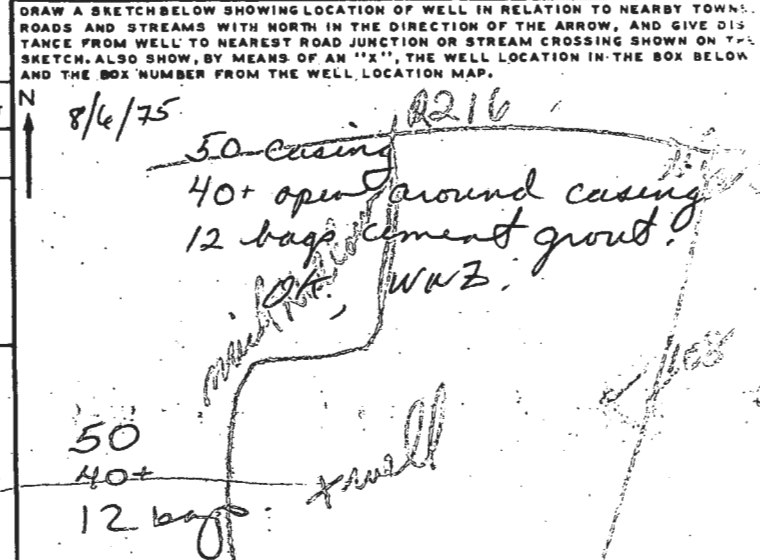 DRAW A SKETCH BELOW SHOWING LOCATION OF WELL IN RELATION TO NEARBY TOWNS.
ROADS AND STREAMS WITH NORTH IN THE DIRECTION OF THE ARROW, AND GIVE DIS
TANCE FROM WELL TO NEAREST ROAD JUNCTION OR STREAM CROSSING SHOWN ON THE
SKETCH. ALSO SHOW, BY MEANS OF AN "X", THE WELL LOCATION IN THE BOX BELOW
AND THE BOX NUMBER FROM THE WELL LOCATION MAP.
N
8/6/75
R216
50 casing
40+ open around casing
12 bags cement grout.
OK, WWZ.
50
40+
12 bags.
x well